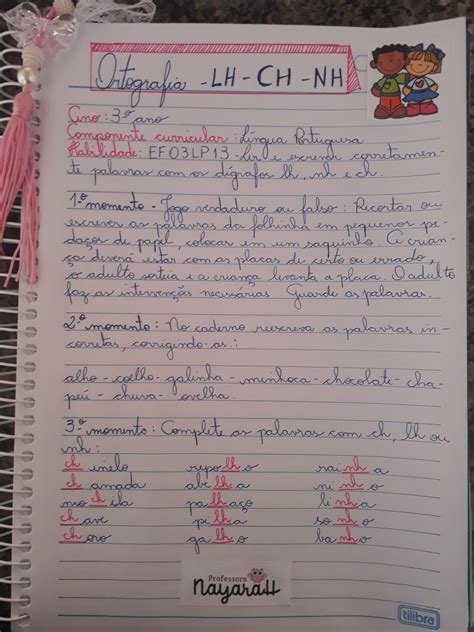 Ortografia - LH - CH - NH
Ano: 3º ano
Componente curricular: Língua Portuguesa
Habilidade: EF03LP13 - Ler e escrever corretamen-
te palavras com os dígrafos lh, nh e ch.
1º momento - Jogo verdadeiro ou falso: Recortar ou
escrever as palavras da folhinha em pequenos pe-
daços de papel, colocar em um saquinho. A crian-
ça deverá estar com as placas de certo ou errado,
o adulto sorteia e a criança levanta a placa. O adulto
faz as intervenções necessárias. Guarde as palavras.
2º momento: No caderno reescreva as palavras in-
corretas, corrigindo-as:
alho - coelho - galinha - minhoca - chocolate - cha-
péu - chuva - ovelha.
3º momento: Complete as palavras com ch, lh ou
nh:
ch inelo repo lh o rai nh a
ch amada abe lh a ni nh o
mo ch ila pa lh aço li nh a
ch ave pi lh a so nh o
ch oro ga lh o ba nh o
Professora
NayaraH
tilibra